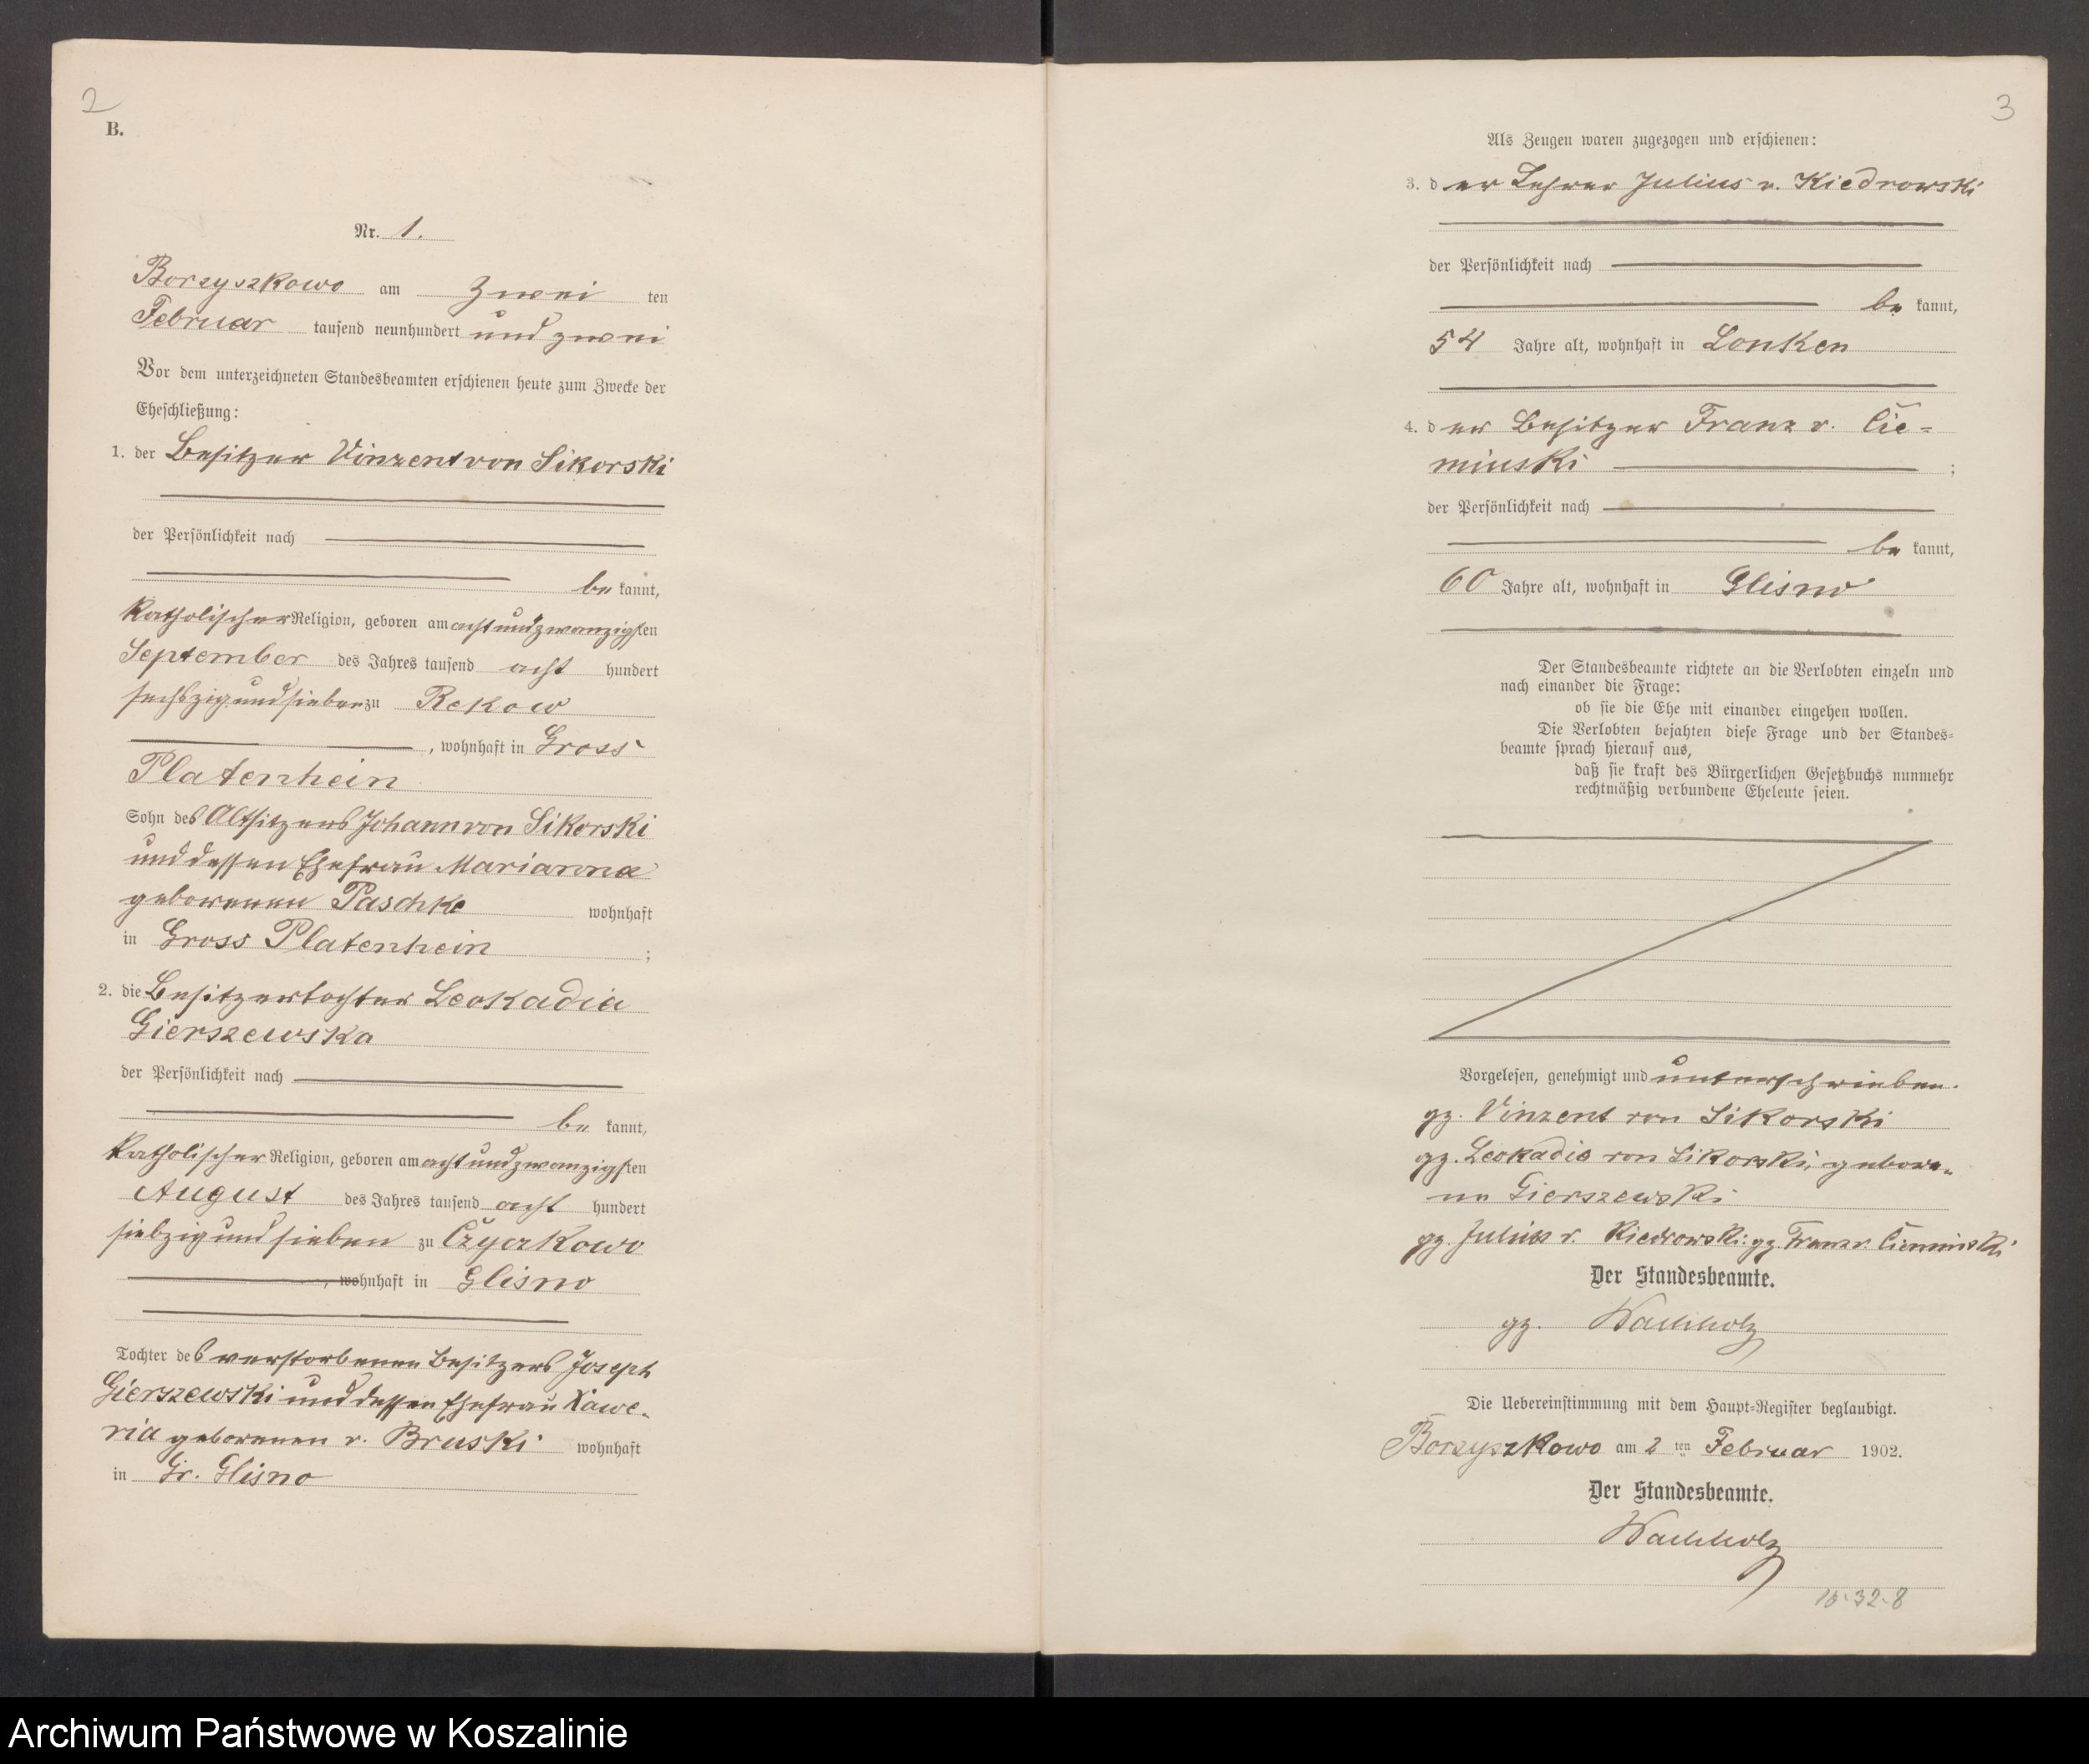 2
B.
Nr. 1.
Borzyszkowo am zwei ten
Februar tausend neunhundert und zwei
Vor dem unterzeichneten Standesbeamten erschienen heute zum Zwecke der
Eheschließung:
1. der Besitzer Vinzent von Sikorski
der Persönlichkeit nach
be kannt,
katholischer Religion, geboren am acht und zwanzigsten
September des Jahres tausend acht hundert
sechszig und sieben zu Rekow
, wohnhaft in Gross
Platenhein
Sohn des Altsitzers Johann von Sikorski
und dessen Ehefrau Marianna
geborenen Paschke wohnhaft
in Gross Platenhein ;
2. die Besitzertochter Leokadia
Gierszewska
der Persönlichkeit nach
be kannt,
katholischer Religion, geboren am acht und zwanzigsten
August des Jahres tausend acht hundert
siebzig und sieben zu Czyczkowo
, wohnhaft in Glisno
Tochter des verstorbenen Besitzers Joseph
Gierszewski und dessen Ehefrau Xawe-
ria geborenen v. Bruski wohnhaft
in Gr. Glisno
3
Als Zeugen waren zugezogen und erschienen:
3. der Lehrer Julius v. Kiedrowski
der Persönlichkeit nach
be kannt,
54 Jahre alt, wohnhaft in Lonken
4. der Besitzer Franz v. Cie=
minski ;
der Persönlichkeit nach
be kannt,
60 Jahre alt, wohnhaft in Glisno
Der Standesbeamte richtete an die Verlobten einzeln und
nach einander die Frage:
ob sie die Ehe mit einander eingehen wollen.
Die Verlobten bejahten diese Frage und der Standes=
beamte sprach hierauf aus,
daß sie kraft des Bürgerlichen Gesetzbuchs nunmehr
rechtmäßig verbundene Eheleute seien.
Vorgelesen, genehmigt und unterschrieben.
gz. Vinzent von Sikorski
gz. Leokadia von Sikorski, gebore-
ne Gierszewski
gz. Julius v. Kiedrowski. gz. Franz v. Cieminski
Der Standesbeamte.
gz. Wachholz
Die Uebereinstimmung mit dem Haupt=Register beglaubigt.
Borzyszkowo am 2 ten Februar 1902.
Der Standesbeamte.
Wachholz
Archiwum Państwowe w Koszalinie